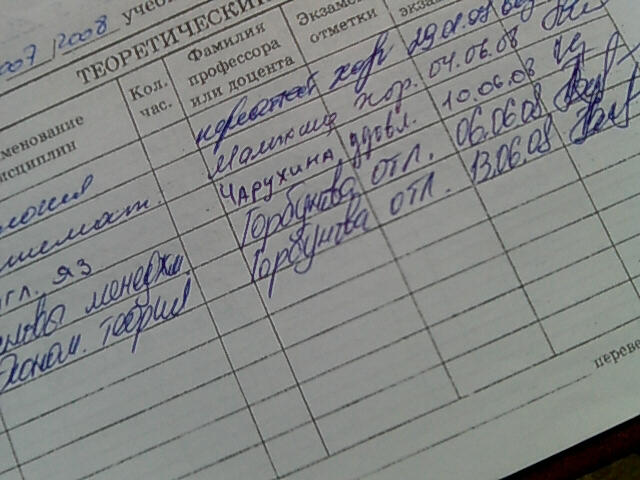 2007/2008 учеб
ТЕОРЕТИЧЕСКИ
именование дисциплин
Кол. час.
Фамилия профессора или доцента
Экзаме отметки
экза
хор 29.01.08
математ. Малкина хор. 04.06.08
англ. яз ЧАРУХИНА удовл. 10.06.08
основы менеджм. Горбунова отл. 06.06.08
Эконом. теория Горбунова отл. 13.06.08
переве